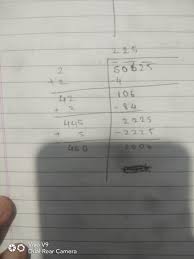 225
2 50625
+2 -4
42 106
+2 -84
445 2225
+ 5 -2225
450 0000
Vivo V9
Dual Rear Camera